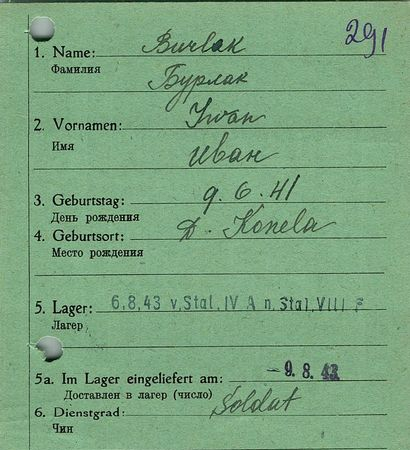 291
1. Name: Burlak
Фамилия
Бурлак
2. Vornamen: Iwan
Имя
Иван
3. Geburtstag: 9.6.41
День рождения
4. Geburtsort: D. Konela
Место рождения
5. Lager: 6.8.43 v. Stal. IV A n. Stal. VIII F
Лагер
5a. Im Lager eingeliefert am: -9.8.43
Доставлен в лагер (число)
6. Dienstgrad: Soldat
Чин